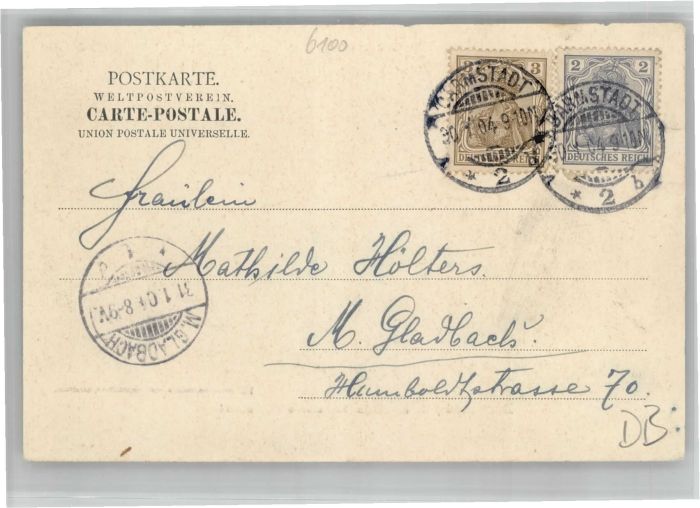 6100
POSTKARTE.
WELTPOSTVEREIN.
CARTE-POSTALE.
UNION POSTALE UNIVERSELLE.
3
2 2
DARMSTADT
30.1.04.9-10N.
* 2 b
DARMSTADT
* 2 b
DEUTSCHES REICH
Fräulein
Mathilde Hölters.
M. Gladbach.
Humboldtstrasse 70.
31.1.04.8-9V.
M. GLADBACH
DB: